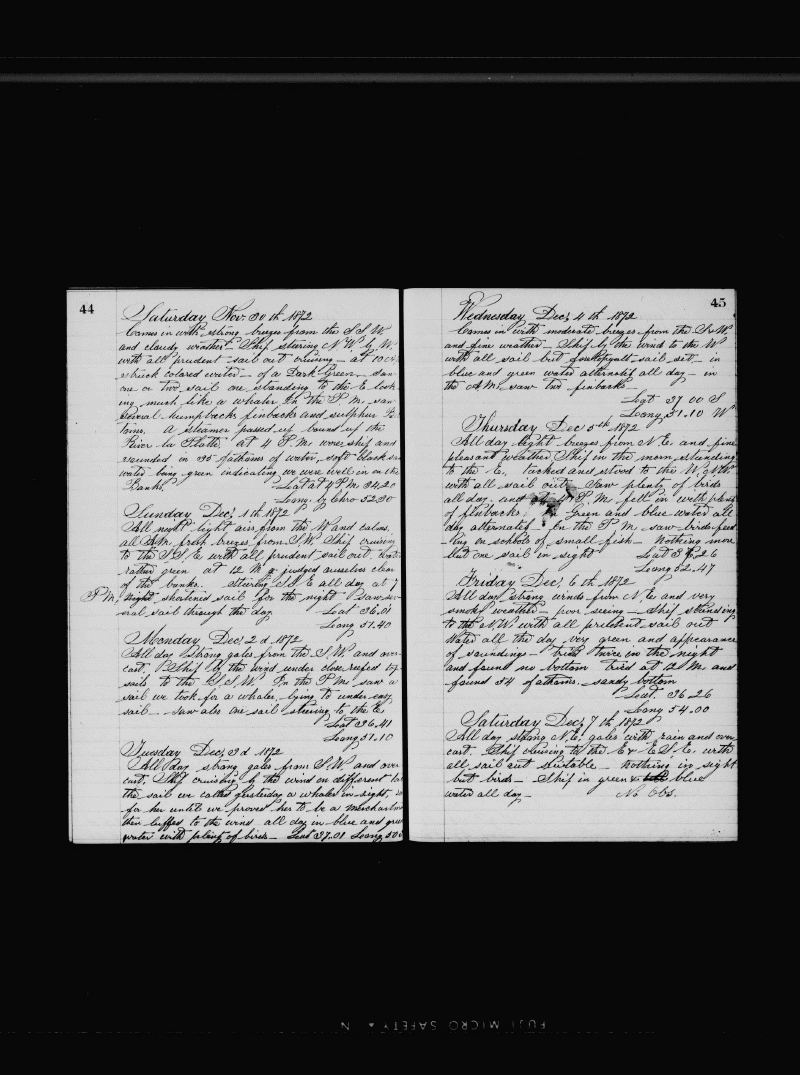 44
Saturday Nov 30th 1872
Comes in with strong breezes from the S S W
and cloudy weather Ship steering N W by W
with all prudent sail out cruising at 10 o'ck
struck colored water of a Dark Green saw
one or two sail one standing to the E look
ing much like a whaler In the P M saw
several humpbacks finbacks and sulphur Bo
toms. A steamer passed up bound up the
River la Platte at 4 P M wore ship and
sounded in 35 fathoms of water, soft black sa
water being green indicating we were well in on the
Banks. Lat at 4 P M 34.20
Long by Chro 52.30
Sunday Dec 1th 1872
All night light airs from the W and calms,
all A.M. fresh breezes from S.W. Ship cruising
to the S S E with all prudent sail out. Water
rather green at 12 M judged ourselves clear
of the banks. Steering S S E all day at 7
P M, shortened sail for the night Saw sev
eral sail through the day Lat 36.01
Long 51.40
Monday Dec 2d 1872
All day strong gales from the S.W and over
cast, Ship by the wind under close reefed top
sails to the In the P M saw a
sail we took for a whaler lying to under easy
sail Saw also one sail steering to the E
Lat 36.41
Long 51.10
Tuesday Dec 3d 1872
All day strong gales from S W and over
cast, Ship cruising by the wind on different ta
the sail we called yesterday a whaler in sight,
for her until we proved her to be a merchantm
then luffed to the wind all day in blue and gree
water with plenty of birds Lat 37.01 Long 50
45
Wednesday Dec 4th 1872
Comes in with moderate breezes from the S W
and fine weather Ship by the wind to the W
with all sail but sail set in
blue and green water alternately all day in
the A M saw two finbacks
Lat 37 00 S
Long 51.10 W
Thursday Dec 5th 1872
All day light breezes from N E and fine
pleasant weather Ship in the morn standing
to the E, tacked and stood to the W N W
with all sail out Saw plenty of birds
all day and P M fell in with plenty
of finbacks Green and blue water all
day alternately In the P M saw birds feed
ing on schools of small fish Nothing more
but one sail in sight Lat 37.26
Long 52.47
Friday Dec 6th 1872
All day strong winds from N.E and very
smoky weather poor seeing Ship standing
to the N W with all prudent sail out
Water all the day very green and appearance
of soundings tried twice in the night
and found no bottom tried at A M and
found 34 fathoms. sandy bottom
Lat 36 26
Long 54.00
Saturday Dec 7th 1872
All day strong N.E. gales with rain and over
cast. Ship cruising to the E & E S E. with
all sail out suitable Nothing in sight
but birds Ship in green & blue
water all day No Obs.
FUJI MICRO SAFETY N